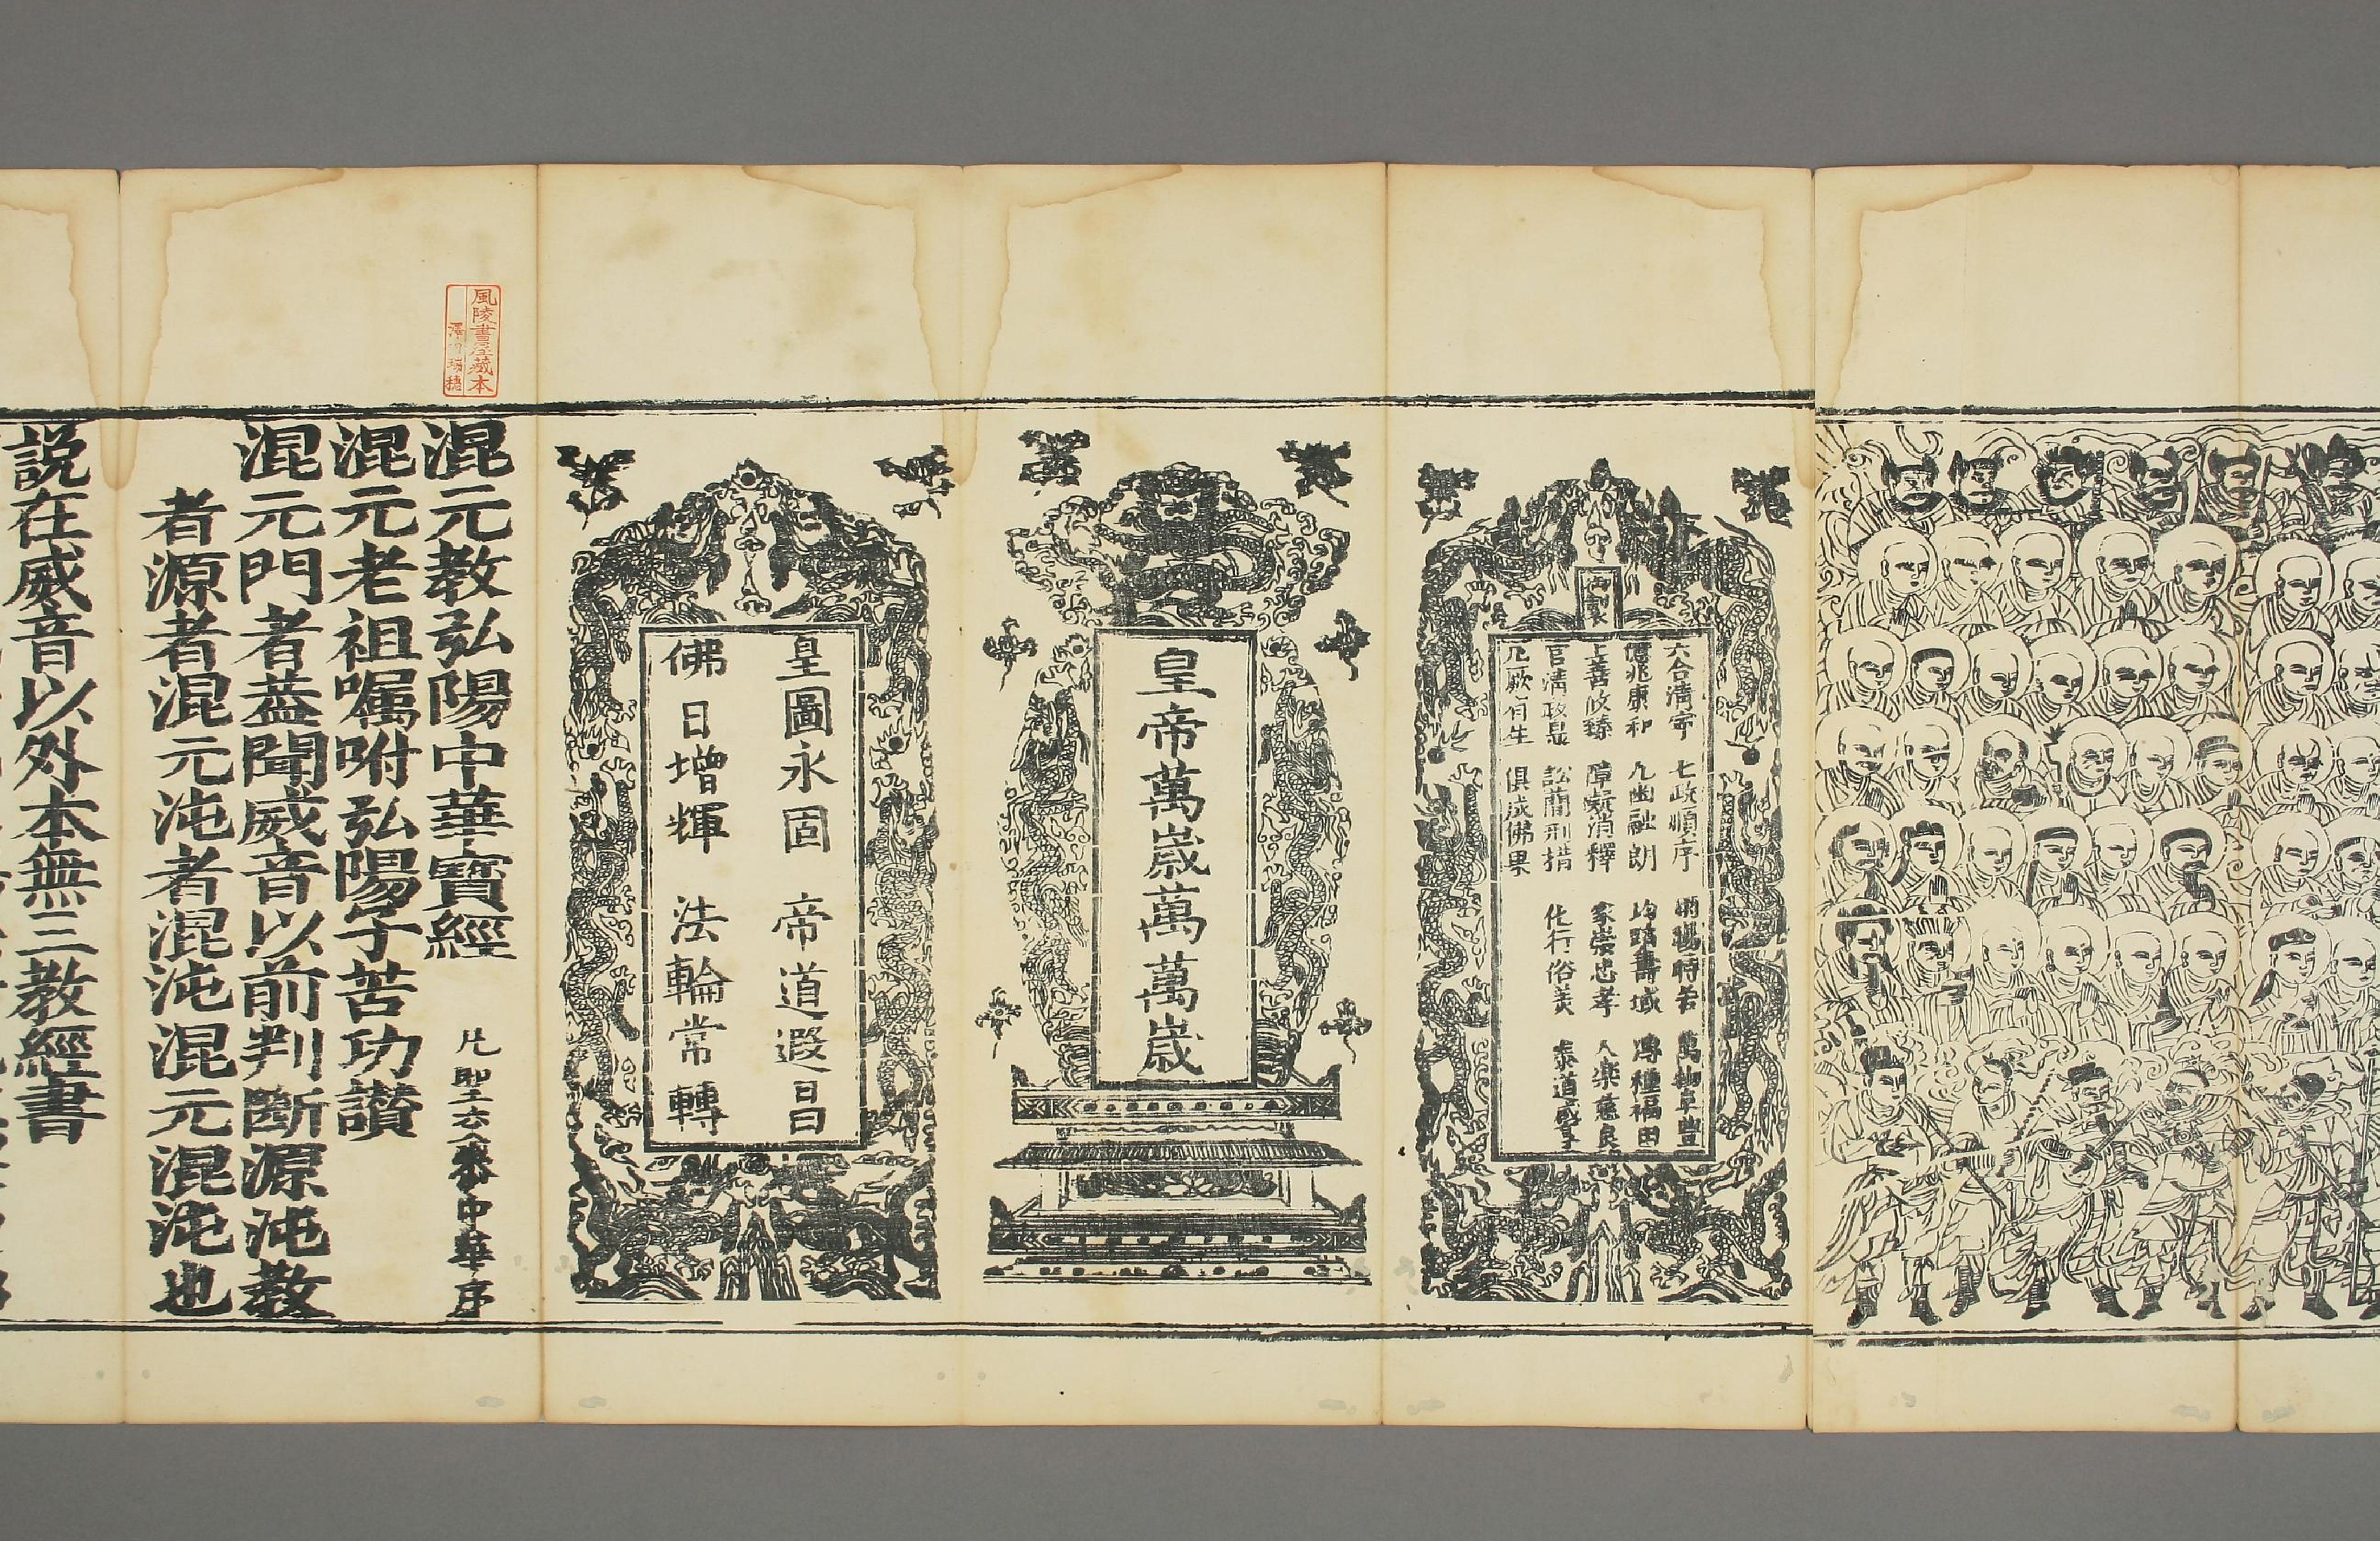 御製
六合清寧 七政順序 雨暘時若 萬物阜豐
億兆康和 九幽融朗 均躋壽域 溥種福田
上善攸臻 障礙消釋 家崇忠孝 人樂慈良
官清政 訟簡刑措 化行俗美 泰道咸
凡厥有生 俱成佛果
皇帝萬歲萬萬歲
皇圖永固 帝道遐昌
佛日增輝 法輪常轉
風陵書屋藏本
澤田瑞穂
混元教弘陽中華寶經 中華序
混元老祖嘱咐弘陽子苦功讃
混元門者葢聞威音以前判斷源沌教
者源者混元沌者混沌混元混沌也
説在威音以外本無三教經書